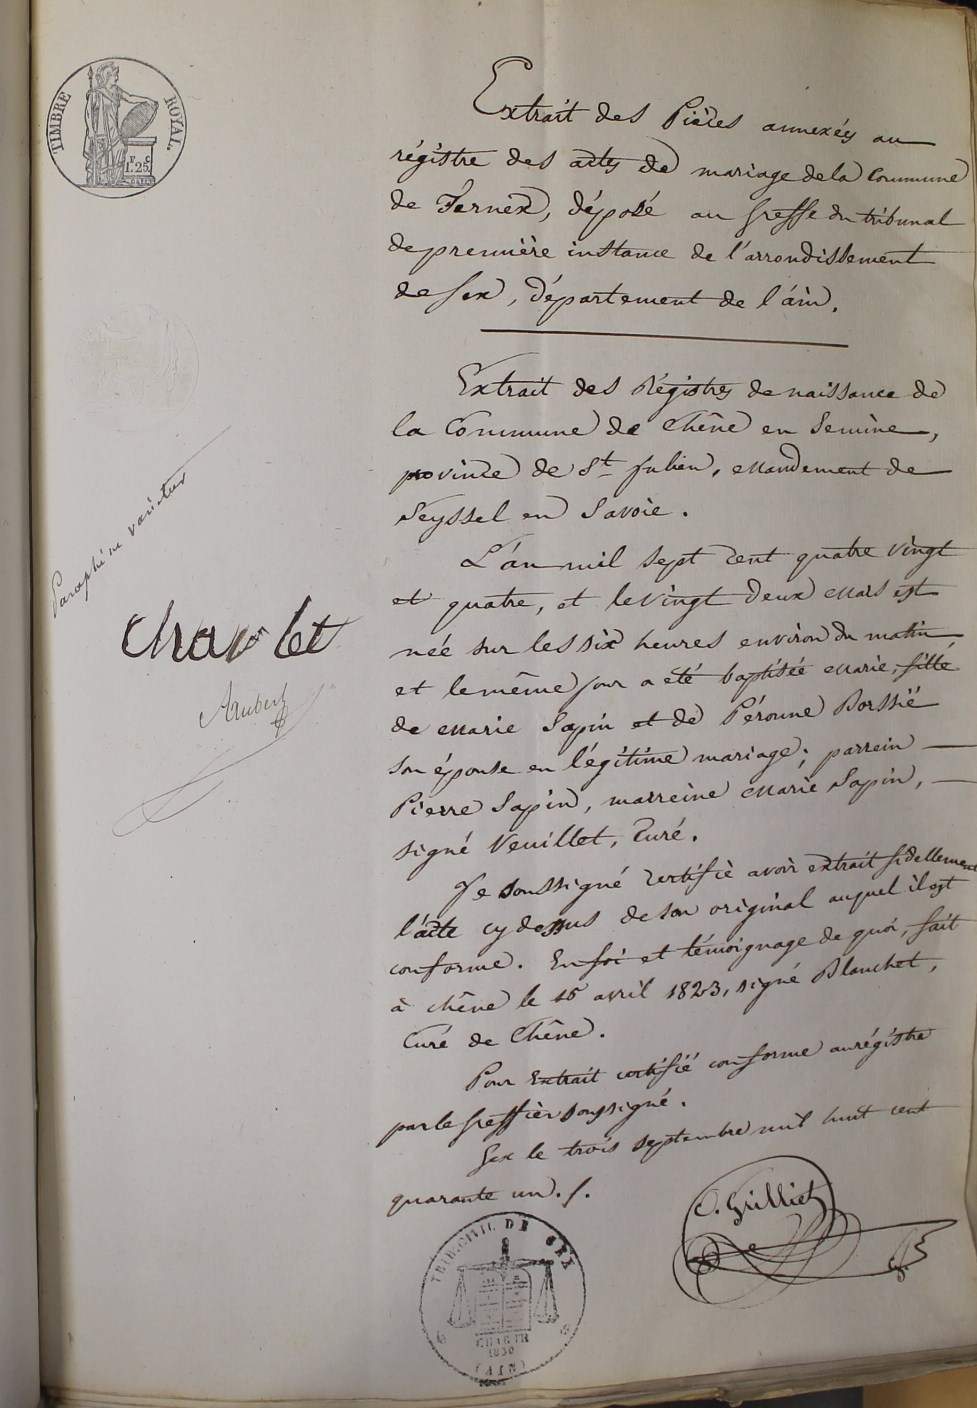 TIMBRE ROYAL.
F. C.
1.25
Extrait des Pièces annexées au
régistre des actes de mariage de la Commune
de Fernex, déposé au Greffe du tribunal
de première instance de l'arrondissement
de Gex, département de l'áin.
Extrait des Régistres de naissance de
la Commune de Chêne en Semine,
province de St. Julien, Mandement de
Seyssel en Savoie.
L'án mil sept cent quatre vingt
et quatre, et le vingt deux Mars est
née sur les six heures environ du matin
et le même jour a été baptisée Marie, fille
de Marie Sapin et de Péronne Borssié
son épouse en légitime mariage; parrein
Pierre Sapin, marreine Marie Sapin,
signé Veuillet, Curé.
Je soussigné certifie avoir extrait fidellement
l'acte cy dessus de son original auquel il est
conforme. En foi et témoignage de quoi, fait
à Chêne le 15 avril 1823, signé Blanchet,
Curé de Chêne.
Pour Extrait certifié conforme au régistre
par le Greffier soussigné.
Gex le trois septembre mil huit cent
quarante un ./.
O. Grilliet
Paraphé ne varietur
Chavolet
Aubert
TRIB. CIVIL DE GEX
CHARTE
1830
(AIN)